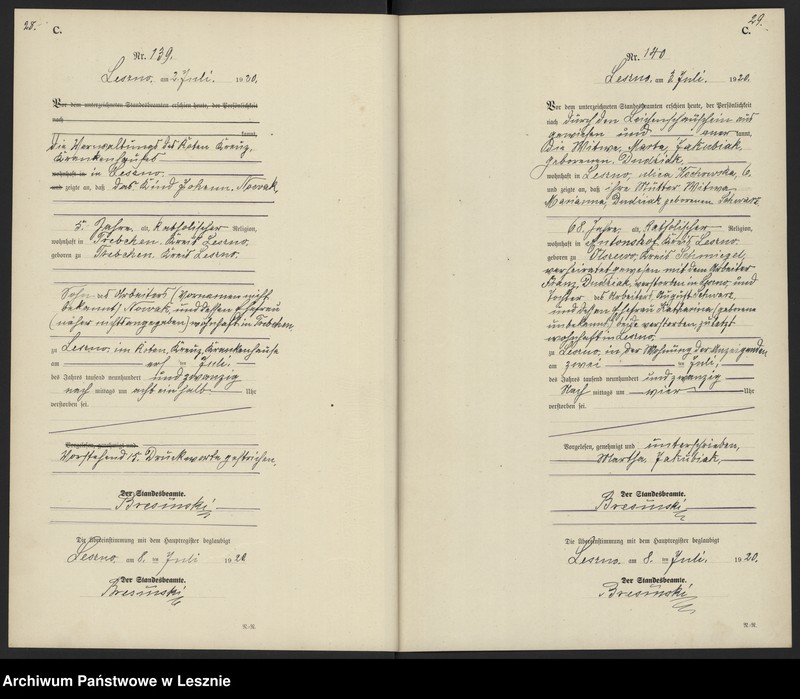 28.
C.
Nr. 139.
Leszno. am 2 Juli. 1920.
Vor dem unterzeichneten Standesbeamten erschien heute, der Persönlichkeit
nach
kannt,
Die Verwaltung des Roten Kreuz,
Krankenhauses
wohnhaft in in Leszno.
und zeigte an, daß das Kind Johann. Nowak,
5. Jahre. alt, katholischer Religion,
wohnhaft in Trebchen. Kreis Lesno.
geboren zu Trebchen. Kreis Lesno.
Sohn des Arbeiters (Vornamen nicht
bekannt) Nowak, und dessen Ehefrau
(näher nicht angegeben) wohnhaft in Trebchen
zu Leszno. im Roten, Kreuz, Krankenhause
am ersten Juli.
des Jahres tausend neunhundert und zwanzig
nach mittags um acht einhalb Uhr
verstorben sei.
Vorgelesen, genehmigt und
Vorstehend 15. Druckworte gestrichen,
Der Standesbeamte.
Bresinski
Die Übereinstimmung mit dem Hauptregister beglaubigt
Leszno. am 8. ten Juli 1920
Der Standesbeamte.
Bresinski
R.-R.
29.
C.
Nr. 140
Leszno. am 3. Juli. 1920.
Vor dem unterzeichneten Standesbeamten erschien heute, der Persönlichkeit
nach durch den Leichenschauschein aus
gewiesen und aner kannt,
Die Witwe, Marta, Jakubiak,
geborenen. Dudziak,
wohnhaft in Leszno, ulica 6.
und zeigte an, daß ihre Mutter Witwe
Marianna, Dudziak geborenen Schwarz
68. Jahre alt, katholischer Religion,
wohnhaft in Antonshof. Kreis Lesno.
geboren zu Kreis Schmiegel,
verheiratet gewesen mit dem Arbeiter
Franz, Dudziak, verstorben in Leszno, und
Tochter des Arbeiters, August Schwarz
und dessen Ehefrau Katharina (geborene
unbekannt) beide verstorben, zuletzt
wohnhaft in Leszno
zu Leszno, in der Wohnung der Anzeigenden,
am zwei ten Juli,
des Jahres tausend neunhundert und zwanzig
Nach mittags um vier Uhr
verstorben sei.
Vorgelesen, genehmigt und unterschrieben,
Martha, Jakubiak,
Der Standesbeamte.
Bresinski
Die Übereinstimmung mit dem Hauptregister beglaubigt
Leszno. am 8. ten Juli. 1920.
Der Standesbeamte.
Bresinski
R.-R.
Archiwum Państwowe w Lesznie